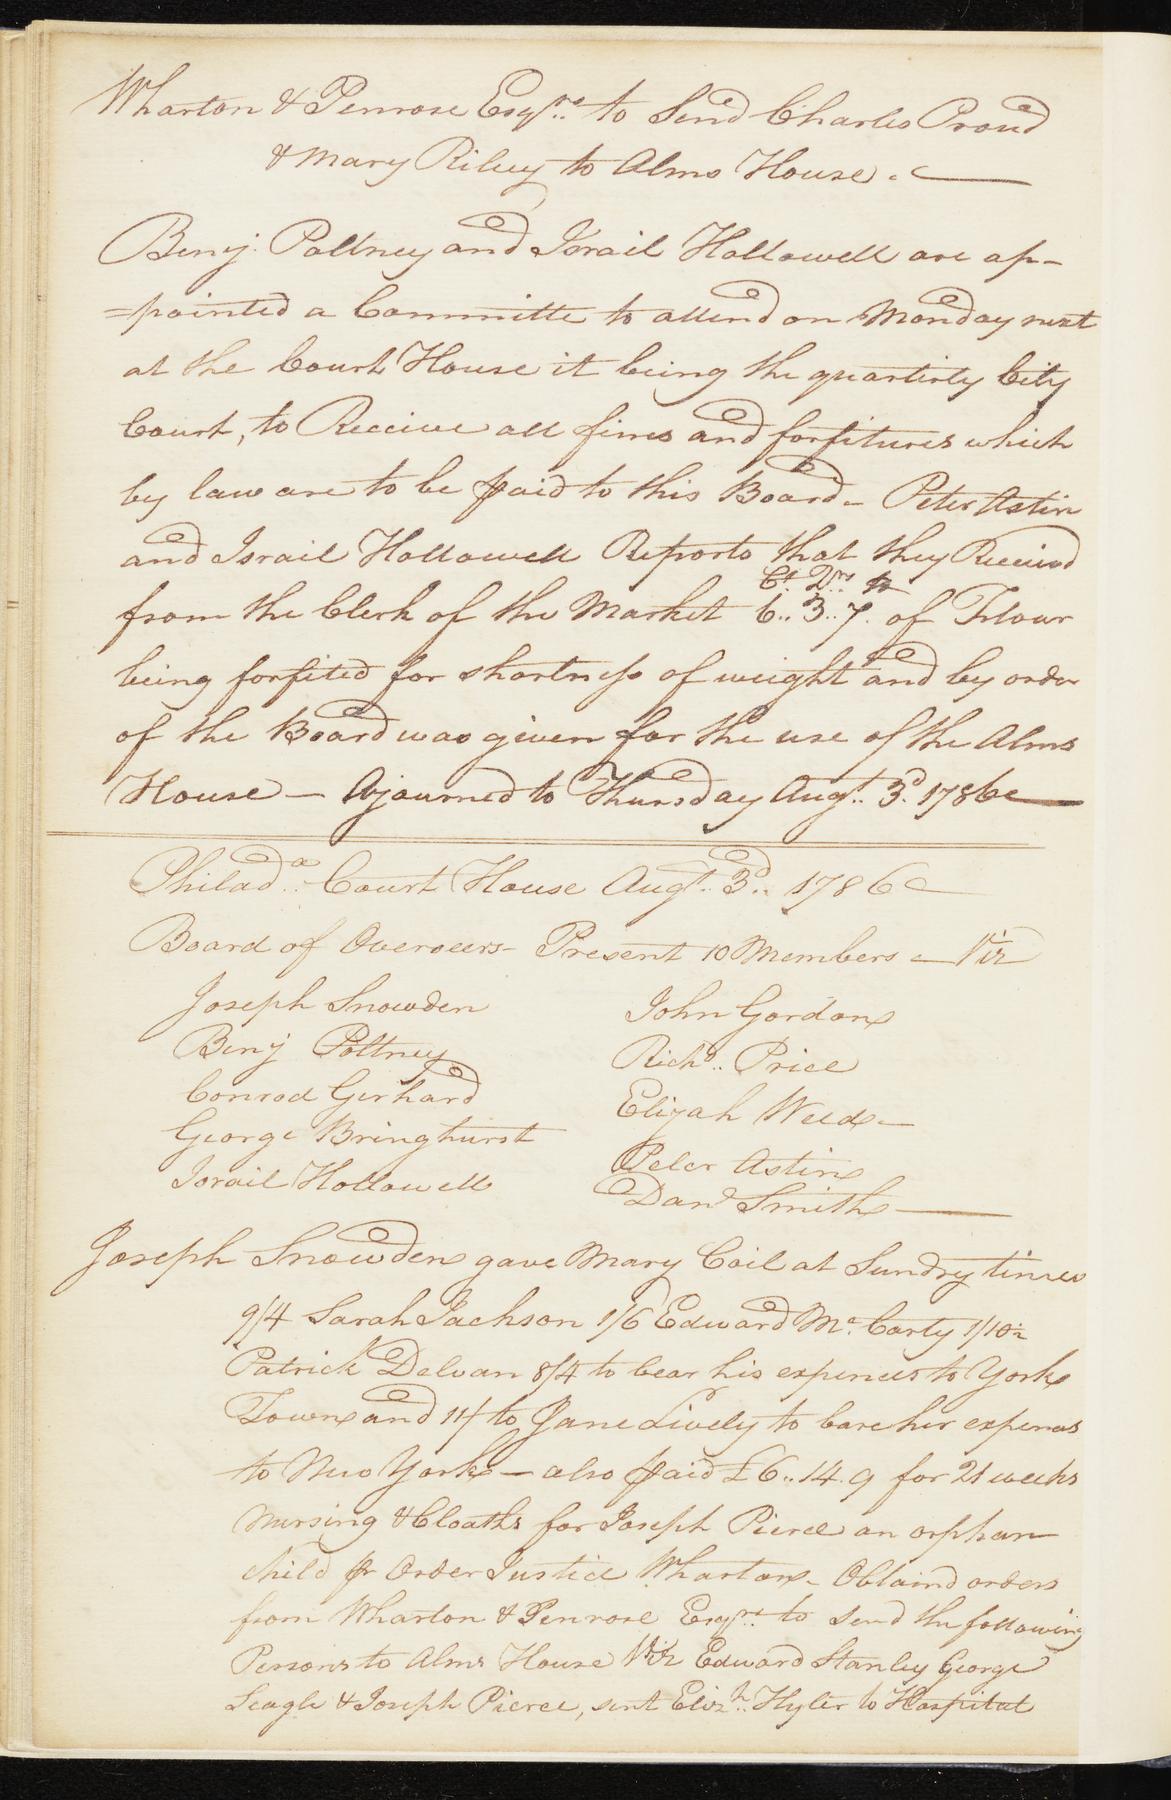 Wharton & Penrose Esqrs. to Send Charles Proud
& Mary Riley to Alms House. —
Benj. Poltney and Israil Hollowell are ap-
=pointed a Committe to attend on Monday next
at the Court House it being the quarterly City
Court, to Receive all fines and forfitures which
by law are to be paid to this Board - Peter Astin
and Israil Hollowell Reports that they Receivd
Ct. Qrs. lb
from the Clerk of the Market 6..3..7. of Flour
being forfited for shortness of weight and by order
of the Board was given for the use of the Alms
House — Ajourned to Thursday Augt. 3d. 1786 —
Philada. Court House Augt. 3d.. 1786
Board of Overseers - Present 10 Members - Viz
Joseph Snowden John Gordon
Benj Poltney Richd. Price
Conrod Gerhard Elijah Weed —
George Bringhurst Peter Astin
Israil Hollowell Danl Smith —
Joseph Snowden gave Mary Coil at Sundry times
9/4 Sarah Jackson 1/6 Edward Mc. Carty 1/10½
Patrick Delvan 8/4 to bear his expences to York
Town and 11/ to Jane Lively to bare her expences
to New York — also paid £6..14.9 for 21 weeks
Nursing & Cloaths for Joseph Pierce an orphan
child pr Order Justice Wharton - Obtaind orders
from Wharton & Penrose Esqrs. to send the following
Persons to Alms House Viz Edward Stanley George
Seagle & Joseph Pierce, sent Elizh.. Hyler to Hospital